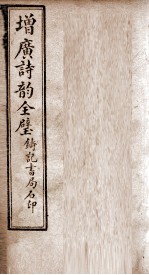 增廣詩韵全璧
錡記書局石印